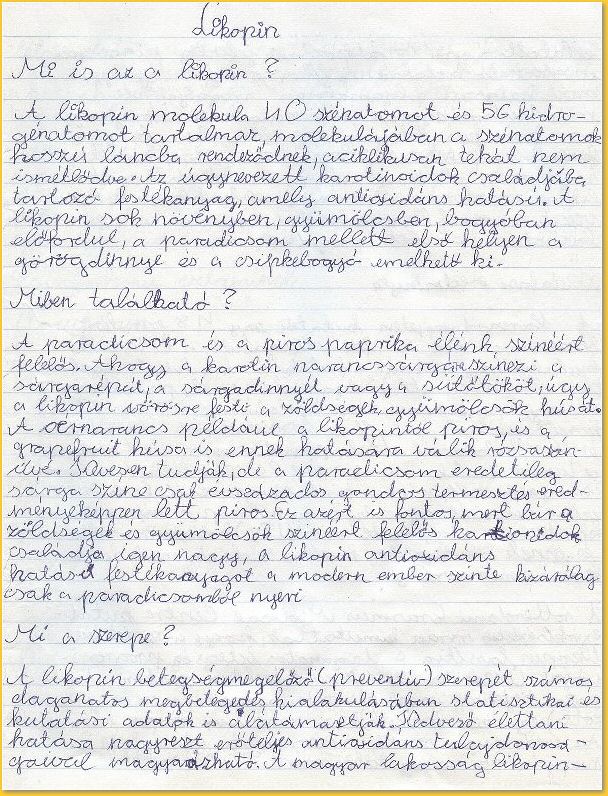 Likopin
Mi is az a likopin ?
A likopin molekula 40 szénatomot és 56 hidro-
génatomot tartalmaz, molekulájában a szénatomok
hosszú láncba rendeződnek, aciklikusan tehát nem
ismétlődve. Az úgynevezett karotinoidok családjába
tartozó festékanyag, amely antioxidáns hatású. A
likopin sok növényben, gyümölcsben, bogyóban
előfordul, a paradicsom mellett első helyen a
görögdinnye és a csipkebogyó emelhető ki.
Miben található ?
A paradicsom és a piros paprika élénk színéért
felelős. Ahogy a karotin narancssárgára színezi a
sárgarépát, a sárgadinnyét vagy a sütőtököt, úgy
a likopin vörösre festi a zöldségek, gyümölcsök húsát.
A vérnarancs például a likopintól piros, és a
grapefruit húsa is ennek hatására válik rózsaszín-
űvé. Kevesen tudják, de a paradicsom eredetileg
sárga színe csak évszázados, gondos termesztés ered-
ményeképpen lett piros. Ez azért is fontos, mert bár a
zöldségek és gyümölcsök színéért felelős
családja igen nagy, a likopin antioxidáns
hatású festékanyagot a modern ember szinte kizárólag
csak a paradicsomból nyeri
Mi a szerepe ?
A likopin betegségmegelőző (preventív) szerepét számos
daganatos megbetegedés kialakulásában statisztikai és
kutatási adatok is alátámasztják. Kedvező élettani
hatása nagyrészt erőteljes antioxidáns tulajdonsá-
gaival magyarázható. A magyar lakosság likopin-